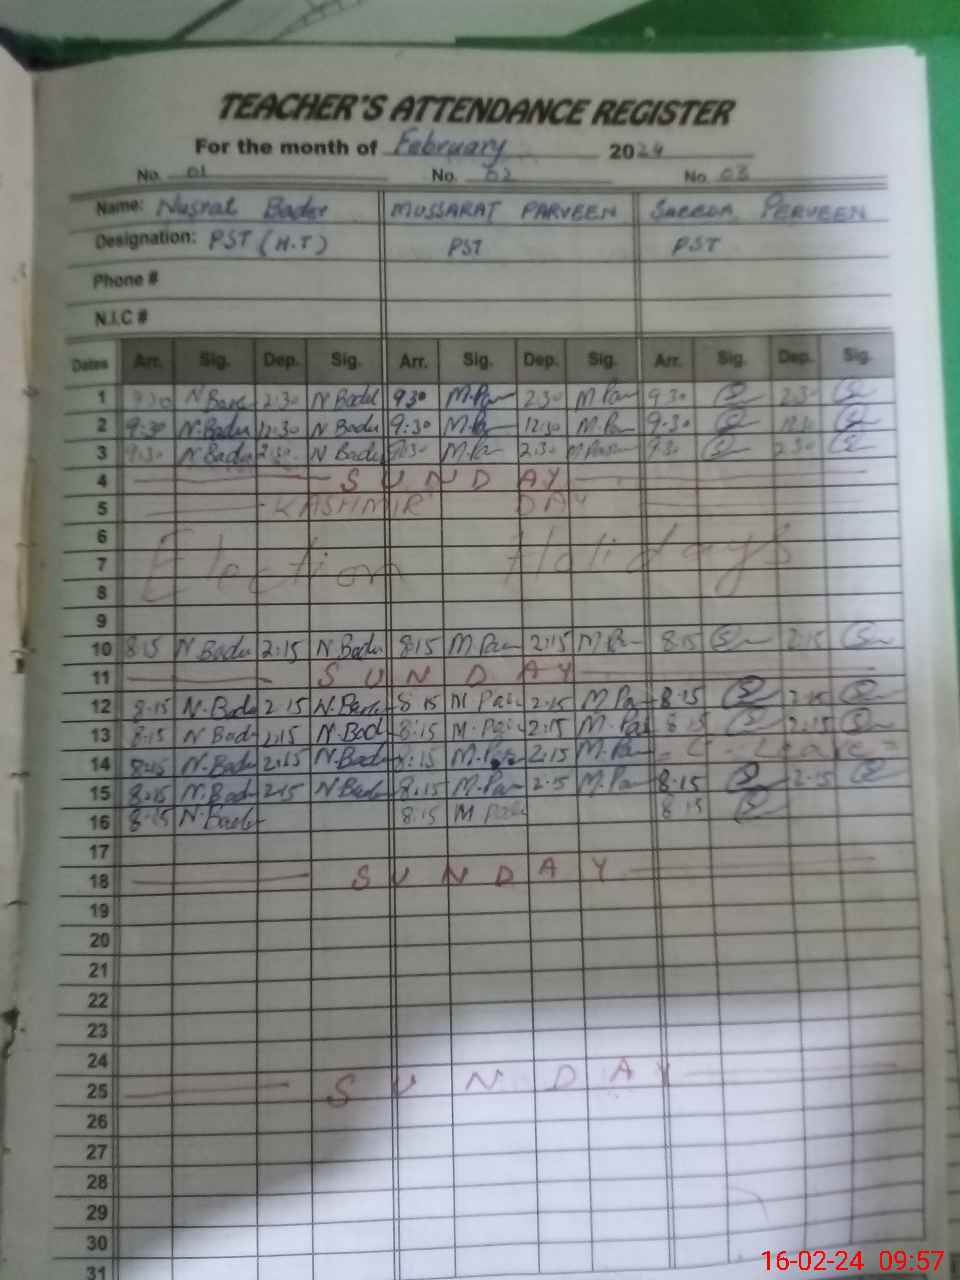 TEACHER'S ATTENDANCE REGISTER
For the month of February 2024
No. 01 No. 02 No. 03
Name: Nusrat Bader MUSSARAT PARVEEN SAEEDA PERVEEN
Designation: PST (H.T) PST PST
Phone #
N.I.C #
Dates Arr. Sig. Dep. Sig. Arr. Sig. Dep. Sig. Arr. Sig. Dep. Sig.
1 9:30 2:30 N Badu 930 M.Par 2:30 M Par 9:30 2:30
2 9:30 N.Badu 12:30 N Badu 9:30 M.Pa 12:30 M.Par 9:30 12:30
3 9:30 N Badu 2:30 N Badu 9:30 M.Pa 2:30 9:30 2:30
4 SUNDAY
5 KASHMIR DAY
6
7 Election Holidays
8
9
10 8:15 N.Badu 2:15 N.Badu 8:15 M.Par 2:15 M.Pa 8:15 2:15
11 SUNDAY
12 8:15 N.Bad 2:15 8:15 M Par 2:15 M.Pa 8:15 2:15
13 8:15 N Bad 2:15 N.Bad 8:15 M.Par 2:15 M.Par 8:15 2:15
14 8:15 N.Badu 2:15 N.Badu 8:15 2:15 M.Par C-Leave
15 8:15 N.Badu 2:15 N.Badu 8:15 M.Par 2:15 M.Par 8:15 2:15
16 8:15 N.Bader 8:15 M Par 8:15
17
18 SUNDAY
19
20
21
22
23
24
25 SUNDAY
26
27
28
29
30
31
16-02-24 09:57